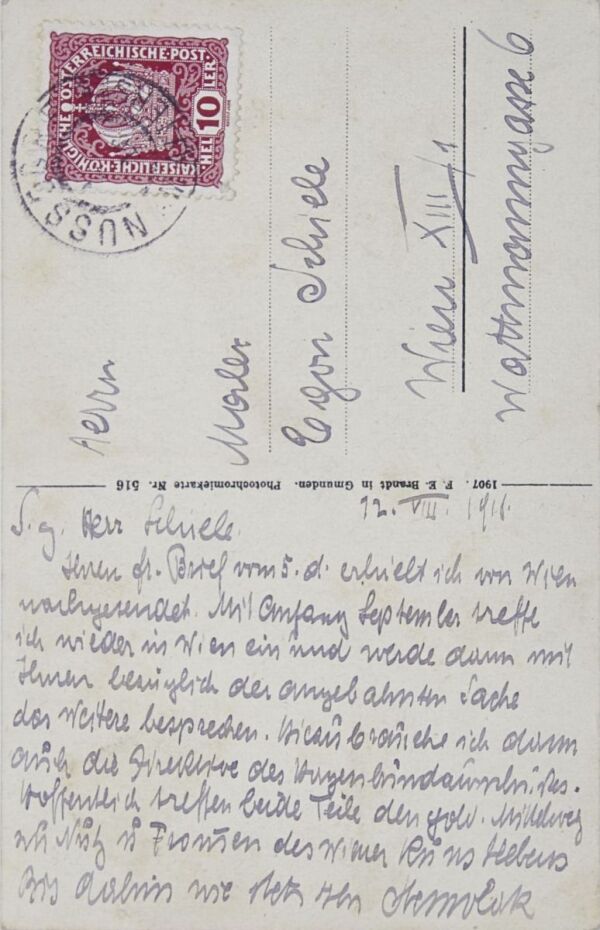 KAISERLICHE·KÖNIGLICHE ÖSTERREICHISCHE·POST·
HEL 10 LER
NUSS
Herrn
Maler
Egon Schiele
Wien XIII/1
Wattmanngasse 6
1907. F. E. Brandt in Gmunden. Photochromiekarte Nr. 516
12. VIII. 1918.
S. g. Herr Schiele.
Ihren fr. Brief vom 5. d. erhielt ich von Wien
nachgesendet. Mit Anfang September treffe
ich wieder in Wien ein und werde dann mit
Ihnen bezüglich der angebahnten Sache
das Weitere besprechen. Hiezu brauche ich dann
auch die Direktive des Hagenbundausschußes.
Hoffentlich treffen beide Teile den gold. Mittelweg
zu Nutz u Frommen des Wiener Kunstlebens
Bis dahin wie stets Ihr